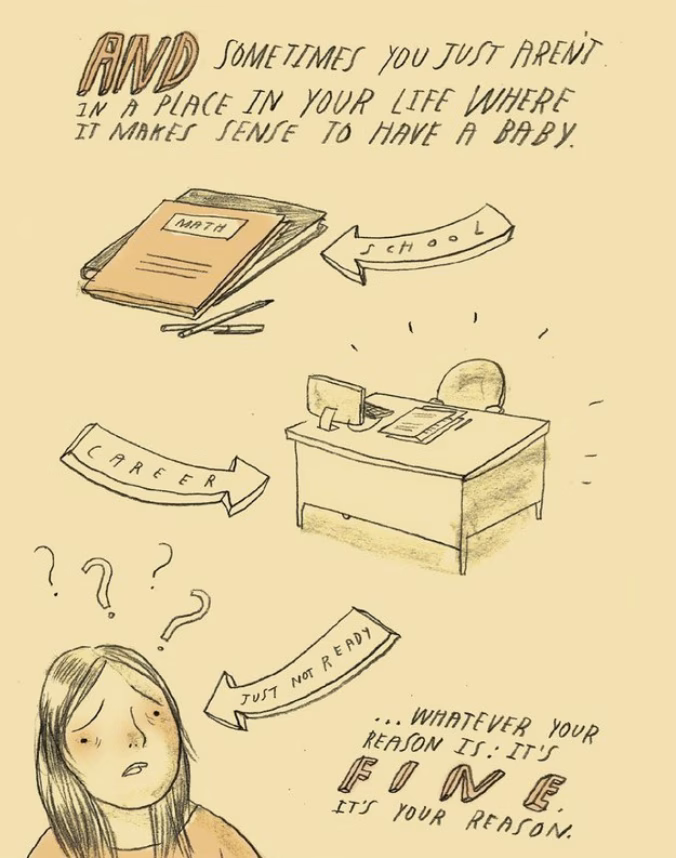 AND SOMETIMES YOU JUST AREN'T
IN A PLACE IN YOUR LIFE WHERE
IT MAKES SENSE TO HAVE A BABY.
MATH
SCHOOL
CAREER
? ? ? ?
JUST NOT READY
...WHATEVER YOUR
REASON IS: IT'S
FINE.
IT'S YOUR REASON.